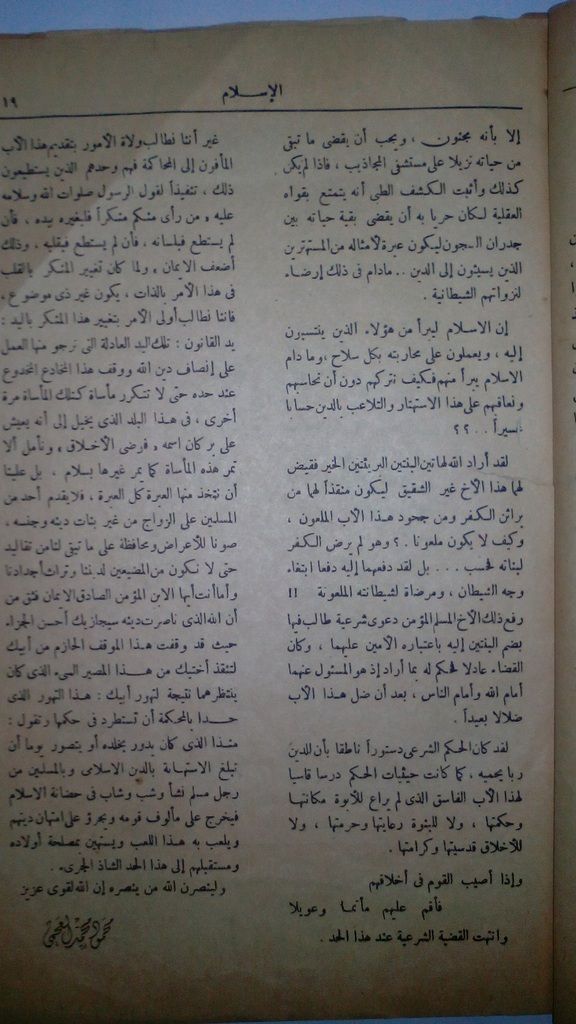 الإسلام
١٩
إلا بأنه مجنون ، ويجب أن يقضى ما تبقى
من حياته نزيلا على مستشفى المجاذيب ، فاذا لم يكن
كذلك وأثبت الكشف الطبى أنه يتمتع بقواه
العقلية لكان حريا به أن يقضى بقية حياته بين
جدران السجون ليكون عبرة لأمثاله من المستهترين
الذين يسيئون إلى الدين .. مادام فى ذلك إرضاء
لنزواتهم الشيطانية .
إن الاسلام ليبرأ من هؤلاء الذين ينتسبون
إليه ، ويعملون على محاربته بكل سلاح ، وما دام
الاسلام يبرأ منهم فكيف نتركهم دون أن نحاسبهم
ونعاقبهم على هذا الاستهتار والتلاعب بالدين حسابا
عسيراً . . ؟ ؟
لقد أراد الله لهاتين البنتين البريئتين الخير فقيض
لهما هذا الأخ غير الشقيق ليكون منقذاً لهما من
براثن الكفر ومن جحود هذا الأب الملعون ،
وكيف لا يكون ملعونا . ؟ وهو لم يرض الكفر
لبناته فحسب ... بل لقد دفعهما إليه دفعا ابتغاء
وجه الشيطان ، ومرضاة لشيطانته الملعونة !!
رفع ذلك الأخ المسلم المؤمن دعوى شرعية طالب فيها
بضم البنتين إليه باعتباره الأمين عليهما ، وكان
القضاء عادلا فحكم له بما أراد إذ هو المسئول عنهما
أمام الله وأمام الناس ، بعد أن ضل هذا الأب
ضلالا بعيداً .
لقد كان الحكم الشرعى دستوراً ناطقا بأن للدين
ربا يحميه ، كما كانت حيثيات الحكم درسا قاسيا
لهذا الأب الفاسق الذى لم يراع للأبوة مكانتها
وحكمتها ، ولا للبنوة رعايتها وحرمتها ، ولا
للأخلاق قدسيتها وكرامتها .
وإذا أصيب القوم فى أخلاقهم
فأقم عليهم مأتما وعويلا
وانتهت القضية الشرعية عند هذا الحد .
غير أننا نطالب ولاة الأمور بتقديم هذا الأب
المأفون إلى المحاكمة فهم وحدهم الذين يستطيعون
ذلك ، تنفيذاً لقول الرسول صلوات الله وسلامه
عليه « من رأى منكم منكراً فليغيره بيده ، فأن
لم يستطع فبلسانه ، فأن لم يستطع فبقلبه ، وذلك
أضعف الايمان » ولما كان تغيير المنكر بالقلب
فى هذا الأمر بالذات ، يكون غير ذى موضوع ،
فاننا نطالب أولى الأمر بتغيير هذا المنكر باليد :
يد القانون : تلك اليد العادلة التى نرجو منها العمل
على إنصاف دين الله ووقف هذا المخادع المخدوع
عند حده حتى لا تتكرر مأساة كتلك المأساة مرة
أخرى ، فى هذا البلد الذى يخيل إلى أنه يعيش
على بركان اسمه « فوضى الأخلاق » ونأمل ألا
تمر هذه المأساة كما يمر غيرها بسلام ، بل علينا
أن نتخذ منها العبرة كل العبرة ، فلا يقدم أحد من
المسلمين على الزواج من غير بنات دينه وجنسه ،
صونا للأعراض ومحافظة على ما تبقى لنا من تقاليد
حتى لا نكون من المضيعين لديننا وتراث أجدادنا
وأما أنت أيها الابن المؤمن الصادق الايمان فثق من
أن الله الذى ناصرت دينه سيجازيك أحسن الجزاء
حيث قد وقفت هذا الموقف الحازم من أبيك
لتنقذ أختيك من هذا المصير السىء الذى كان
ينتظرهما نتيجة لتهور أبيك : هذا التهور الذى
حدا بالمحكمة أن تستطرد فى حكمها وتقول :
منذا الذى كان يدور بخلده أو يتصور يوما أن
تبلغ الاستهانة بالدين الاسلامى وبالمسلمين من
رجل مسلم نشأ وشب وشاب فى حضانة الاسلام
فيخرج على مألوف قومه ويجرؤ على امتهان دينهم
ويلعب به هذا اللعب ويستهين بمصلحة أولاده
ومستقبلهم إلى هذا الحد الشاذ الجرىء .
ولينصرن الله من ينصره إن الله لقوى عزيز
محمود محمد